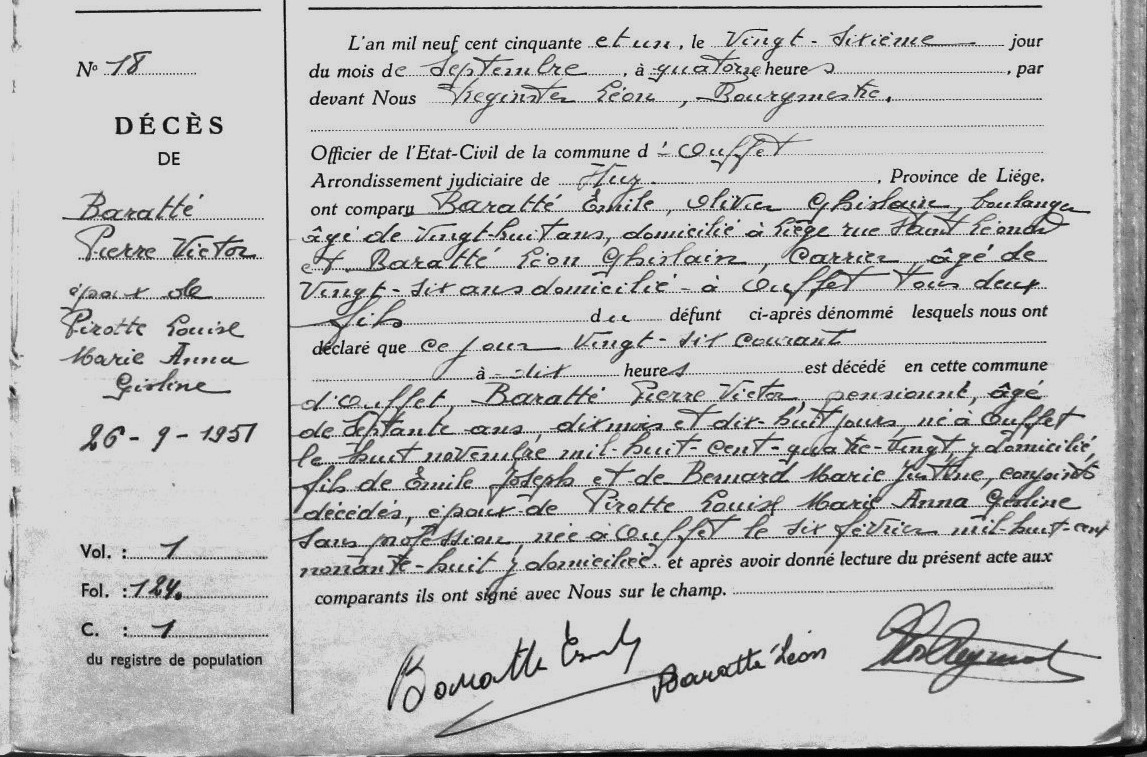 N° 18
DÉCÈS
DE
Baratté
Pierre Victor
époux de
Pirotte Louise
Marie Anna
Gisline
26-9-1951
Vol. : 1
Fol. : 124.
C. : 1
du registre de population
L'an mil neuf cent cinquante et un, le Vingt-sixième jour
du mois de Septembre, à quatorze heures, par
devant Nous Léon, Bourgmestre,
Officier de l'Etat-Civil de la commune d'Ouffet
Arrondissement judiciaire de Huy, Province de Liége,
ont comparu Baratté Emile, Olivier Ghislain, boulanger
âgé de Vingt-huit ans, domicilié à Liège rue Haut Léonard
et Baratté Léon Ghislain, Carrier, âgé de
Vingt-six ans domicilié à Ouffet tous deux
fils du défunt ci-après dénommé lesquels nous ont
déclaré que ce jour Vingt-six courant
à dix heures est décédé en cette commune
d'Ouffet, Baratté Pierre Victor, pensionné, âgé
de septante ans, dix mois et dix-huit jours, né à Ouffet
le huit novembre mil-huit-cent-quatre-vingt, y domicilié,
fils de Emile Joseph et de Bernard Marie Justine, conjoints
décédés, époux de Pirotte Louise Marie Anna Gisline
sans profession, née à Ouffet le six février mil-huit-cent
nonante-huit y domiciliée. et après avoir donné lecture du présent acte aux
comparants ils ont signé avec Nous sur le champ.
Baratté Emile
Baratté Léon